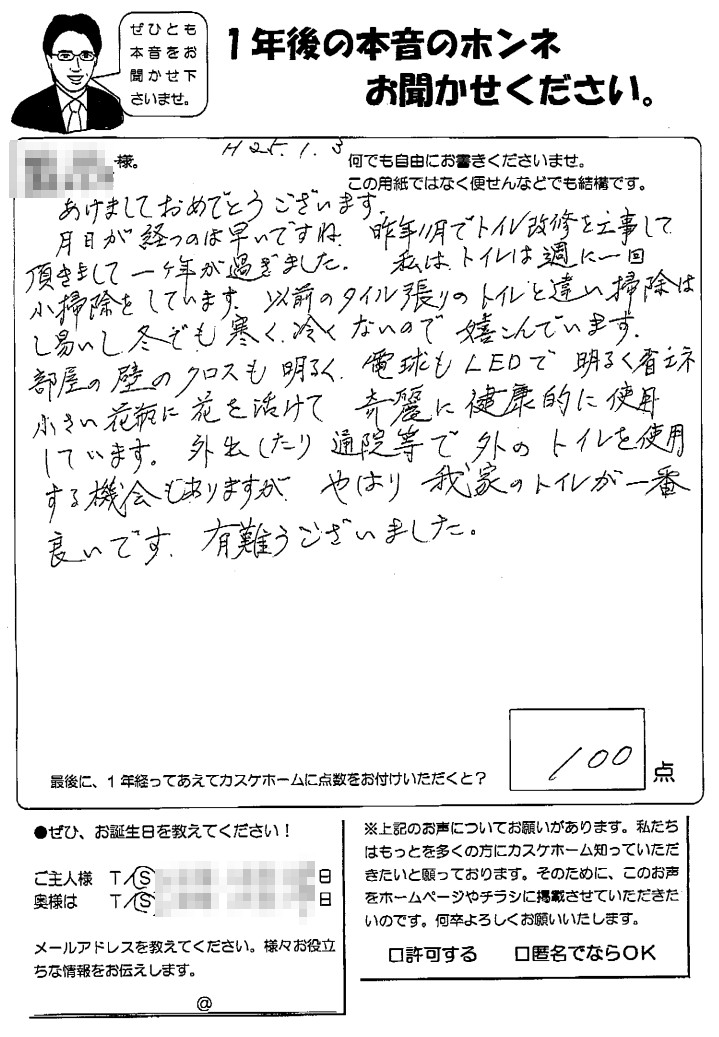 ぜひとも
本音をお
聞かせ下
さいませ。
1年後の本音のホンネ
お聞かせください。
様。
H25.1.3
何でも自由にお書きくださいませ。
この用紙ではなく便せんなどでも結構です。
あけましておめでとうございます。
月日が経つのは早いですね 昨年11月でトイレ改修を工事して
頂きまして一ヶ年が過ぎました。 私はトイレは週に一回
小掃除をしています。以前のタイル張りのトイレと違い掃除は
し易いし冬でも寒く冷くないので嬉こんでいます。
部屋の壁のクロスも明るく、電球もLEDで明るく省エネ
小さい花瓶に花を活けて 奇麗に健康的に使用
しています。外出したり通院等で外のトイレを使用
する機会もありますが やはり我家のトイレが一番
良いです。有難うございました。
最後に、1年経ってあえてカスケホームに点数をお付けいただくと?
100
点
●ぜひ、お誕生日を教えてください!
ご主人様 T/S 日
奥様は T/S 日
メールアドレスを教えてください。様々お役立
ちな情報をお伝えします。
@
※上記のお声についてお願いがあります。私たち
はもっとを多くの方にカスケホーム知っていただ
きたいと願っております。そのために、このお声
をホームページやチラシに掲載させていただきた
いのです。何卒よろしくお願いいたします。
□許可する □匿名でならOK